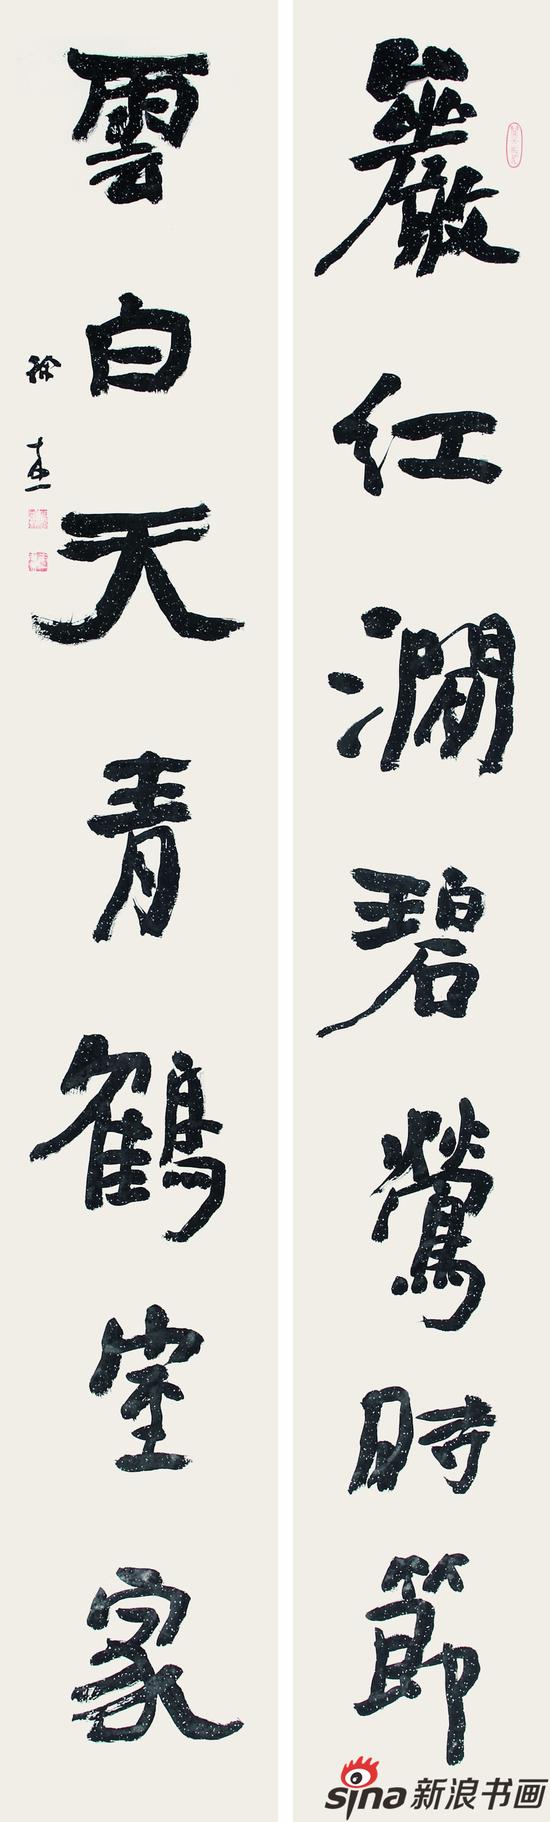 巖红澗碧鶯時節
雲白天青鶴室家
徐
sina新浪书画